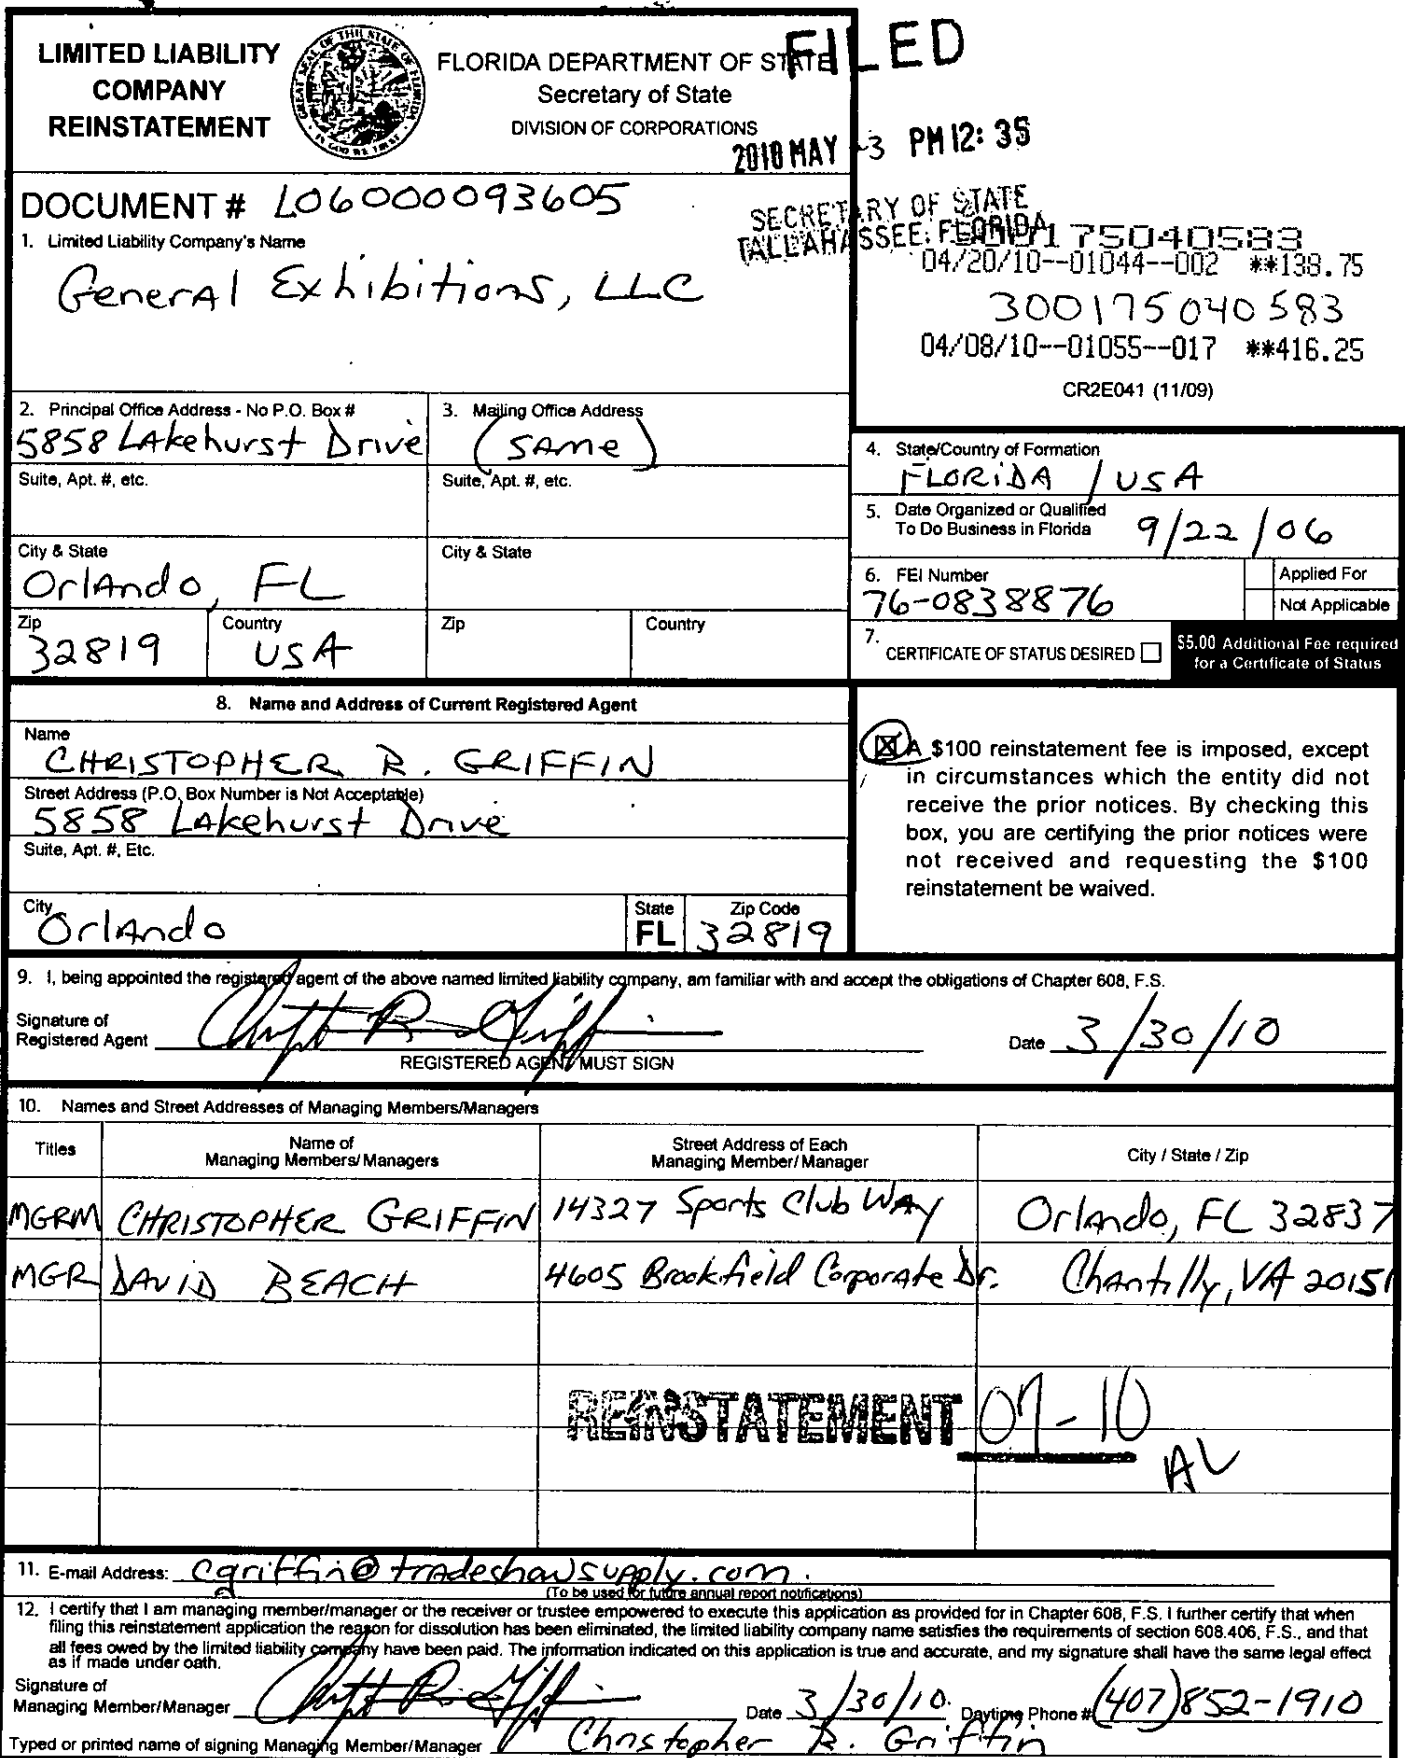 LIMITED LIABILITY
COMPANY
REINSTATEMENT
FLORIDA DEPARTMENT OF STATE
Secretary of State
DIVISION OF CORPORATIONS
FILED
2010 MAY -3 PM 12: 35
SECRETARY OF STATE
TALLAHASSEE, FLORIDA
DOCUMENT # L06000093605
1. Limited Liability Company's Name
General Exhibitions, LLC
175040583
04/20/10--01044--002 **138.75
300175040583
04/08/10--01055--017 **416.25
CR2E041 (11/09)
2. Principal Office Address - No P.O. Box #
5858 LAkehurst Drive
3. Mailing Office Address
(SAme)
Suite, Apt. #, etc.
Suite, Apt. #, etc.
City & State
Orlando, FL
City & State
Zip
32819
Country
USA
Zip
Country
4. State/Country of Formation
FLORIDA / USA
5. Date Organized or Qualified
To Do Business in Florida
9/22/06
6. FEI Number
76-0838876
Applied For
Not Applicable
7. CERTIFICATE OF STATUS DESIRED
$5.00 Additional Fee required
for a Certificate of Status
8. Name and Address of Current Registered Agent
Name
CHRISTOPHER R. GRIFFIN
Street Address (P.O. Box Number is Not Acceptable)
5858 LAkehurst Drive
Suite, Apt. #, Etc.
City
Orlando
State
FL
Zip Code
32819
A $100 reinstatement fee is imposed, except
in circumstances which the entity did not
receive the prior notices. By checking this
box, you are certifying the prior notices were
not received and requesting the $100
reinstatement be waived.
9. I, being appointed the registered agent of the above named limited liability company, am familiar with and accept the obligations of Chapter 608, F.S.
Signature of
Registered Agent
Date 3/30/10
REGISTERED AGENT MUST SIGN
10. Names and Street Addresses of Managing Members/Managers
Titles
Name of
Managing Members/Managers
Street Address of Each
Managing Member/Manager
City / State / Zip
MGRM CHRISTOPHER GRIFFIN 14327 Sports Club WAy Orlando, FL 32837
MGR DAVID BEACH 4605 Brookfield Corporate Dr. Chantilly, VA 20151
REINSTATEMENT 07-10
AL
11. E-mail Address: cgriffin@tradeshowsupply.com.
(To be used for future annual report notifications)
12. I certify that I am managing member/manager or the receiver or trustee empowered to execute this application as provided for in Chapter 608, F.S. I further certify that when
filing this reinstatement application the reason for dissolution has been eliminated, the limited liability company name satisfies the requirements of section 608.406, F.S., and that
all fees owed by the limited liability company have been paid. The information indicated on this application is true and accurate, and my signature shall have the same legal effect
as if made under oath.
Signature of
Managing Member/Manager
Date 3/30/10. Daytime Phone # (407)852-1910
Typed or printed name of signing Managing Member/Manager Christopher R. Griffin